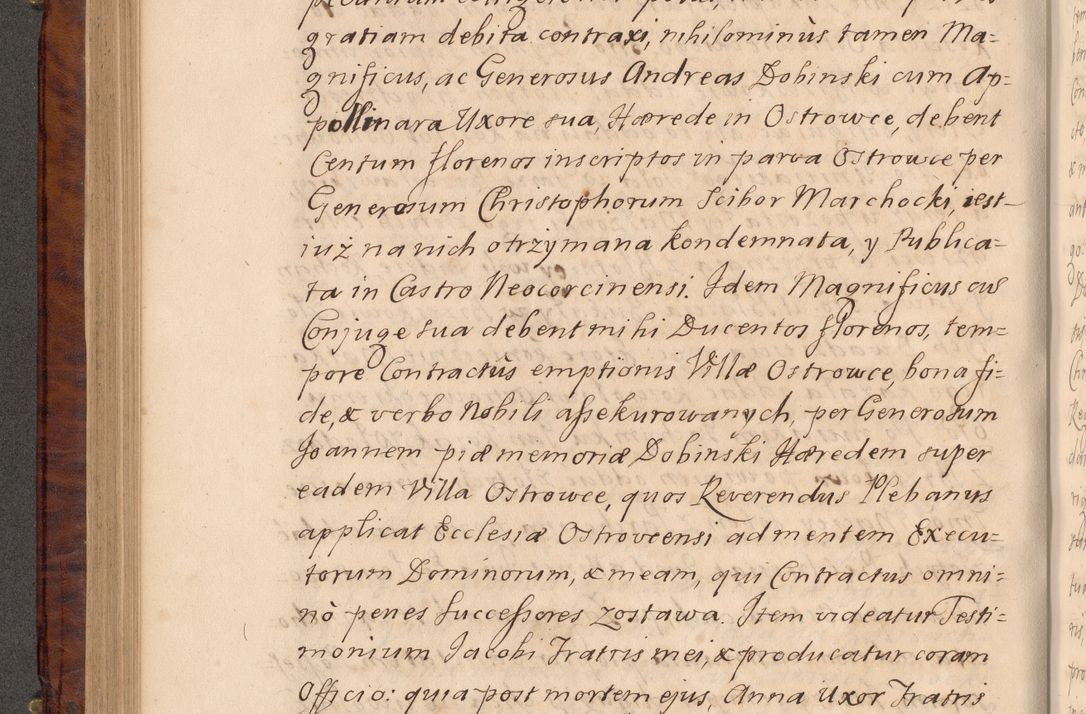 gratiam debita contraxi, nihilominùs tamen Ma=
gnificus, ac Generosus Andreas Dobinski cum Ap=
pollinara Uxore sua, Hærede in Ostrowce, debent
Centum florenos inscriptos in parva Ostrowce per
Generosum Christophorum Scibor Marchocki, iest
iuż na nich otrzymana kondemnata, y Publica=
ta in Castro Neocorcinensi. Idem Magnificus cū
Conjuge sua debent mihi Ducentos florenos, tem=
pore Contractùs emptionis Villæ Ostrowce, bona fi=
de, & verbo Nobili assekurowanych, per Generosum
Joannem piæ memoriæ Dobinski Hæredem super
eadem Villa Ostrowce, quos Reverendus Plebanus
applicat Ecclesiæ Ostrovcensi ad mentem Execu=
torum Dominorum, & meam, qui Contractus omni=
nò penes Successores zostawa. Item videatur Testi=
monium Jacobi Fratris mei, & producatur coram
Officio: quia post mortem ejus, Anna Uxor Fratris